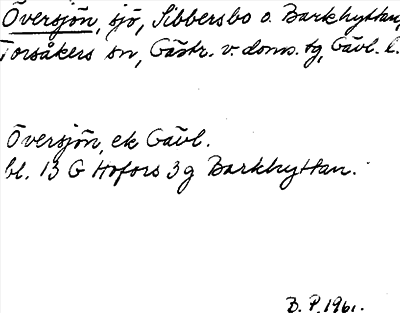 Översjön, sjö, Sibbersbo o. Barkhyttan,
Torsåkers sn, Gästr. v. doms. tg, Gävl. l.
Översjön, ek Gävl.
bl. 13 G Hofors 3 g Barkhyttan.
B. P. 1961.